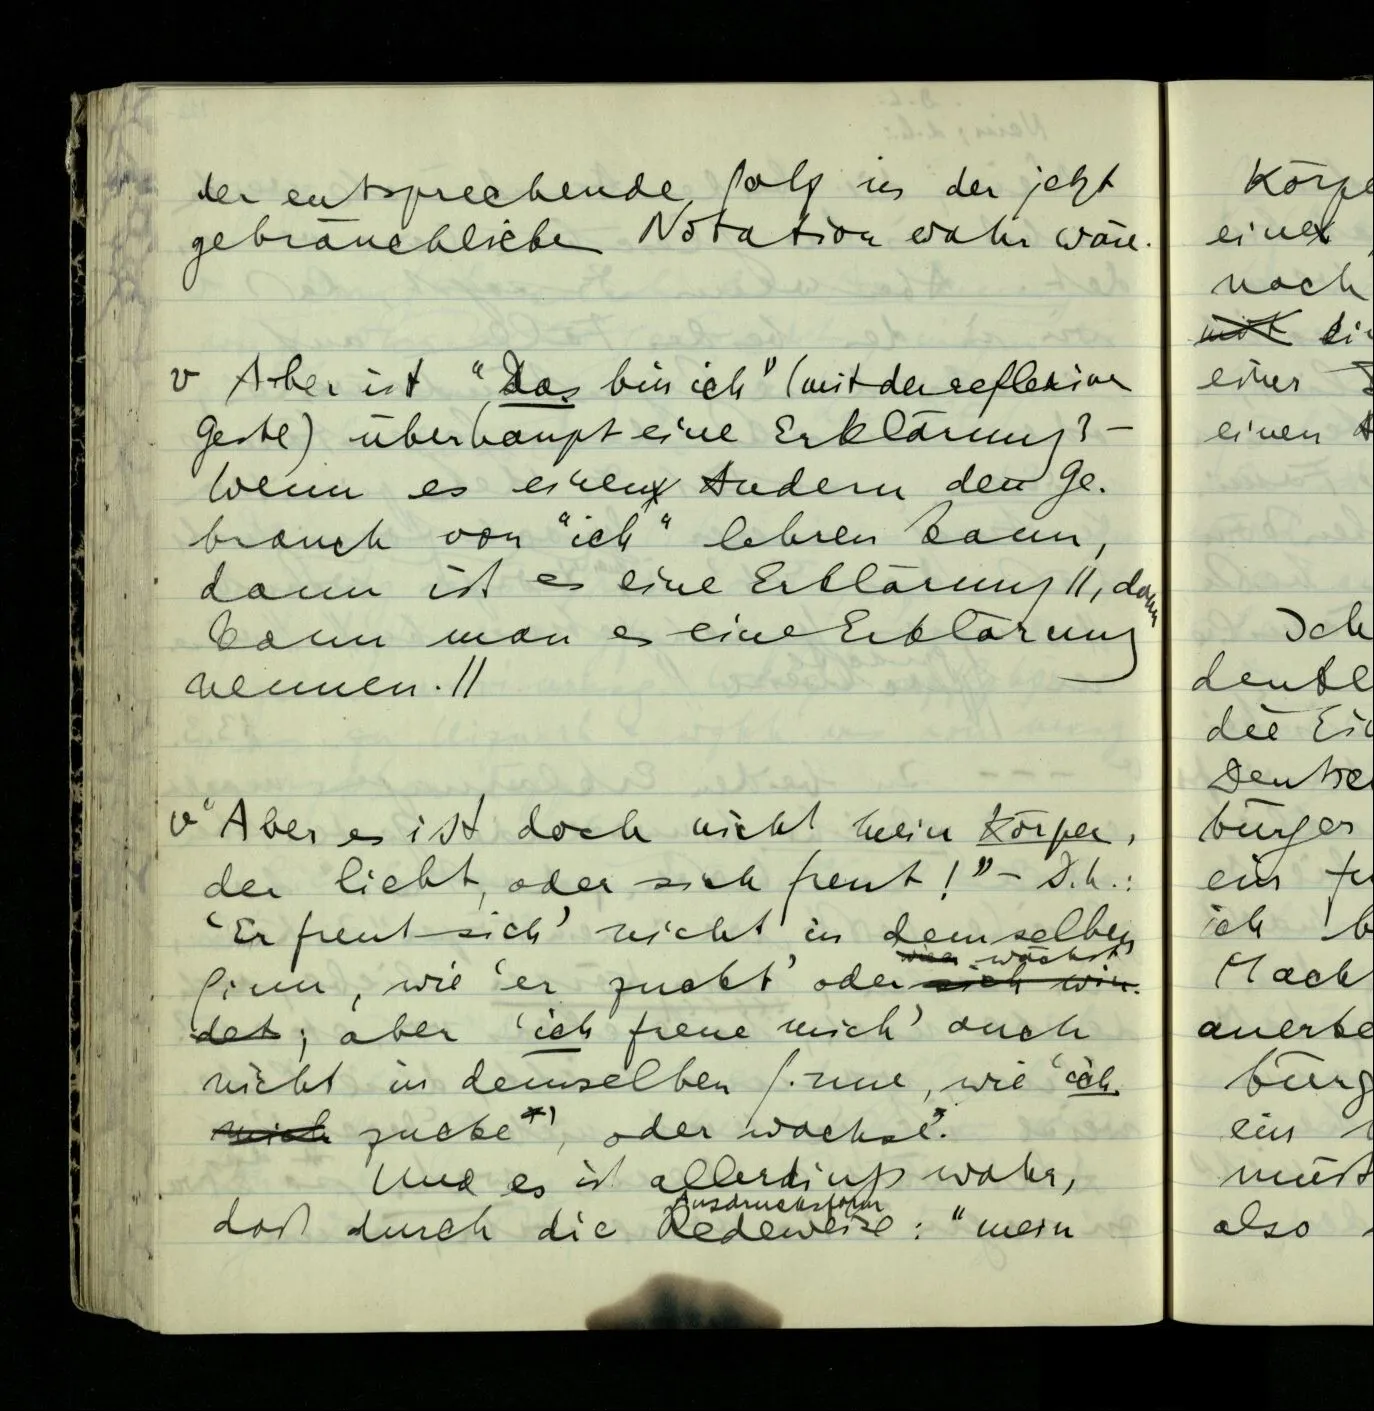 der entsprechende Satz in der jetzt
gebräuchlichen Notation wahr wäre.
v Aber ist “Das bin ich” (mit der reflexiven
Geste) überhaupt eine Erklärung? –
Wenn es einen Andern den Ge-
brauch von “ich“ lehren kann,
dann ist es eine Erklärung //, dann
kann man es eine Erklärung
nennen. //
v “Aber es ist doch nicht mein Körper,
der liebt, oder sich freut!” – D.h.:
‘Er freut sich’ nicht in demselben
wächst’
Sinn, wie ‘er zuckt’ oder sich win-
det; aber ‘ich freue mich’ auch
nicht in demselben Sinne, wie ‘ich
mich zucke*’, oder wachse’.
Und es ist allerdings wahr,
Ausdrucksform
daß durch die Redeweise: “mein
Körpe
einer
noch
mit
einer
einen
Ich
deute
die
Deutsc
bürger
ein
ich
Mach
anerke
bürg
ein
müßt
also